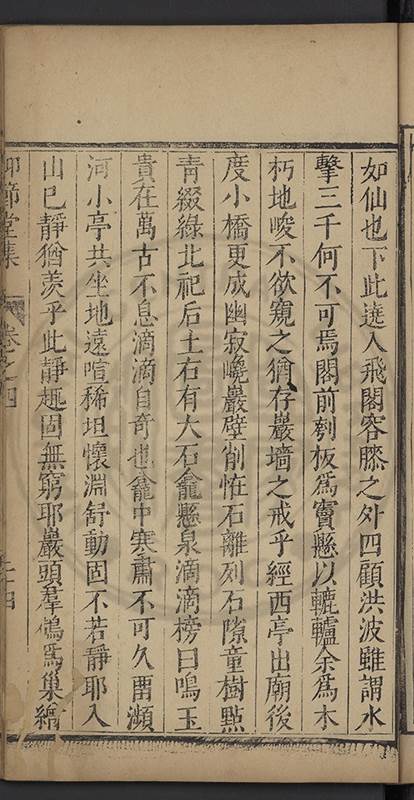 如仙也下此遶入飛閣容膝之外四顧洪波雖謂水
擊三千何不可焉閣前刳板為竇懸以轆轤余為木
朽地峻不欲窺之猶存巖墻之戒乎經西亭出廟後
度小橋更成幽寂巉巖壁削怪石離列石隙童樹點
青綴綠北祀后土右有大石龕懸泉滴滴榜曰鳴玉
貴在萬古不息滴滴自奇也龕中寒肅不可久畱瀕
河小亭共坐地遠喧稀坦懷淵舒動固不若靜耶入
山已靜猶羨乎此靜趣固無窮耶巖頭羣鴿為巢繞
仰節堂集 卷之四